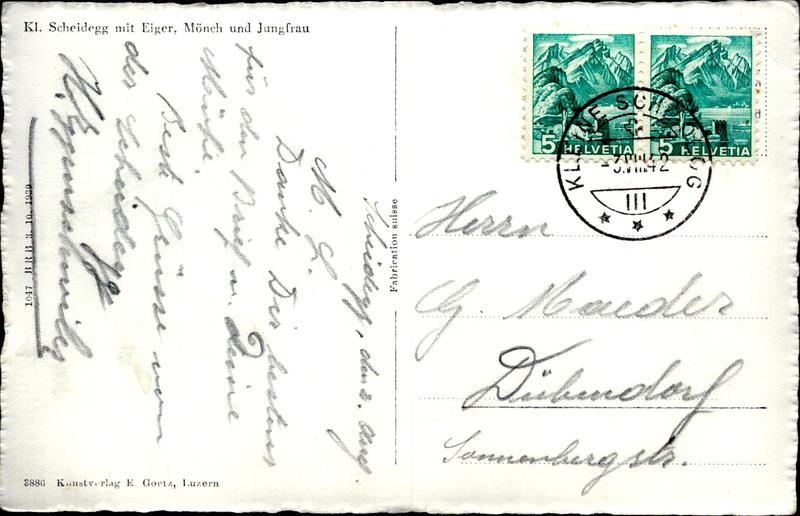 Kl. Scheidegg mit Eiger, Mönch und Jungfrau
Scheidegg, den 2. Aug.
M. L.
Danke Dir bestens
für den Brief u. Deine
Mühe.
Beste Grüsse von
der Scheidegg
1047 BRB 3. 10. 1939
Fabrication suisse
3886 Kunstverlag E. Goetz, Luzern
5 HELVETIA
5 HELVETIA
KLEINE SCHEIDEGG
-3.VIII.42
III
Herrn
G. Maeder
Dübendorf
Sonnenbergstr.